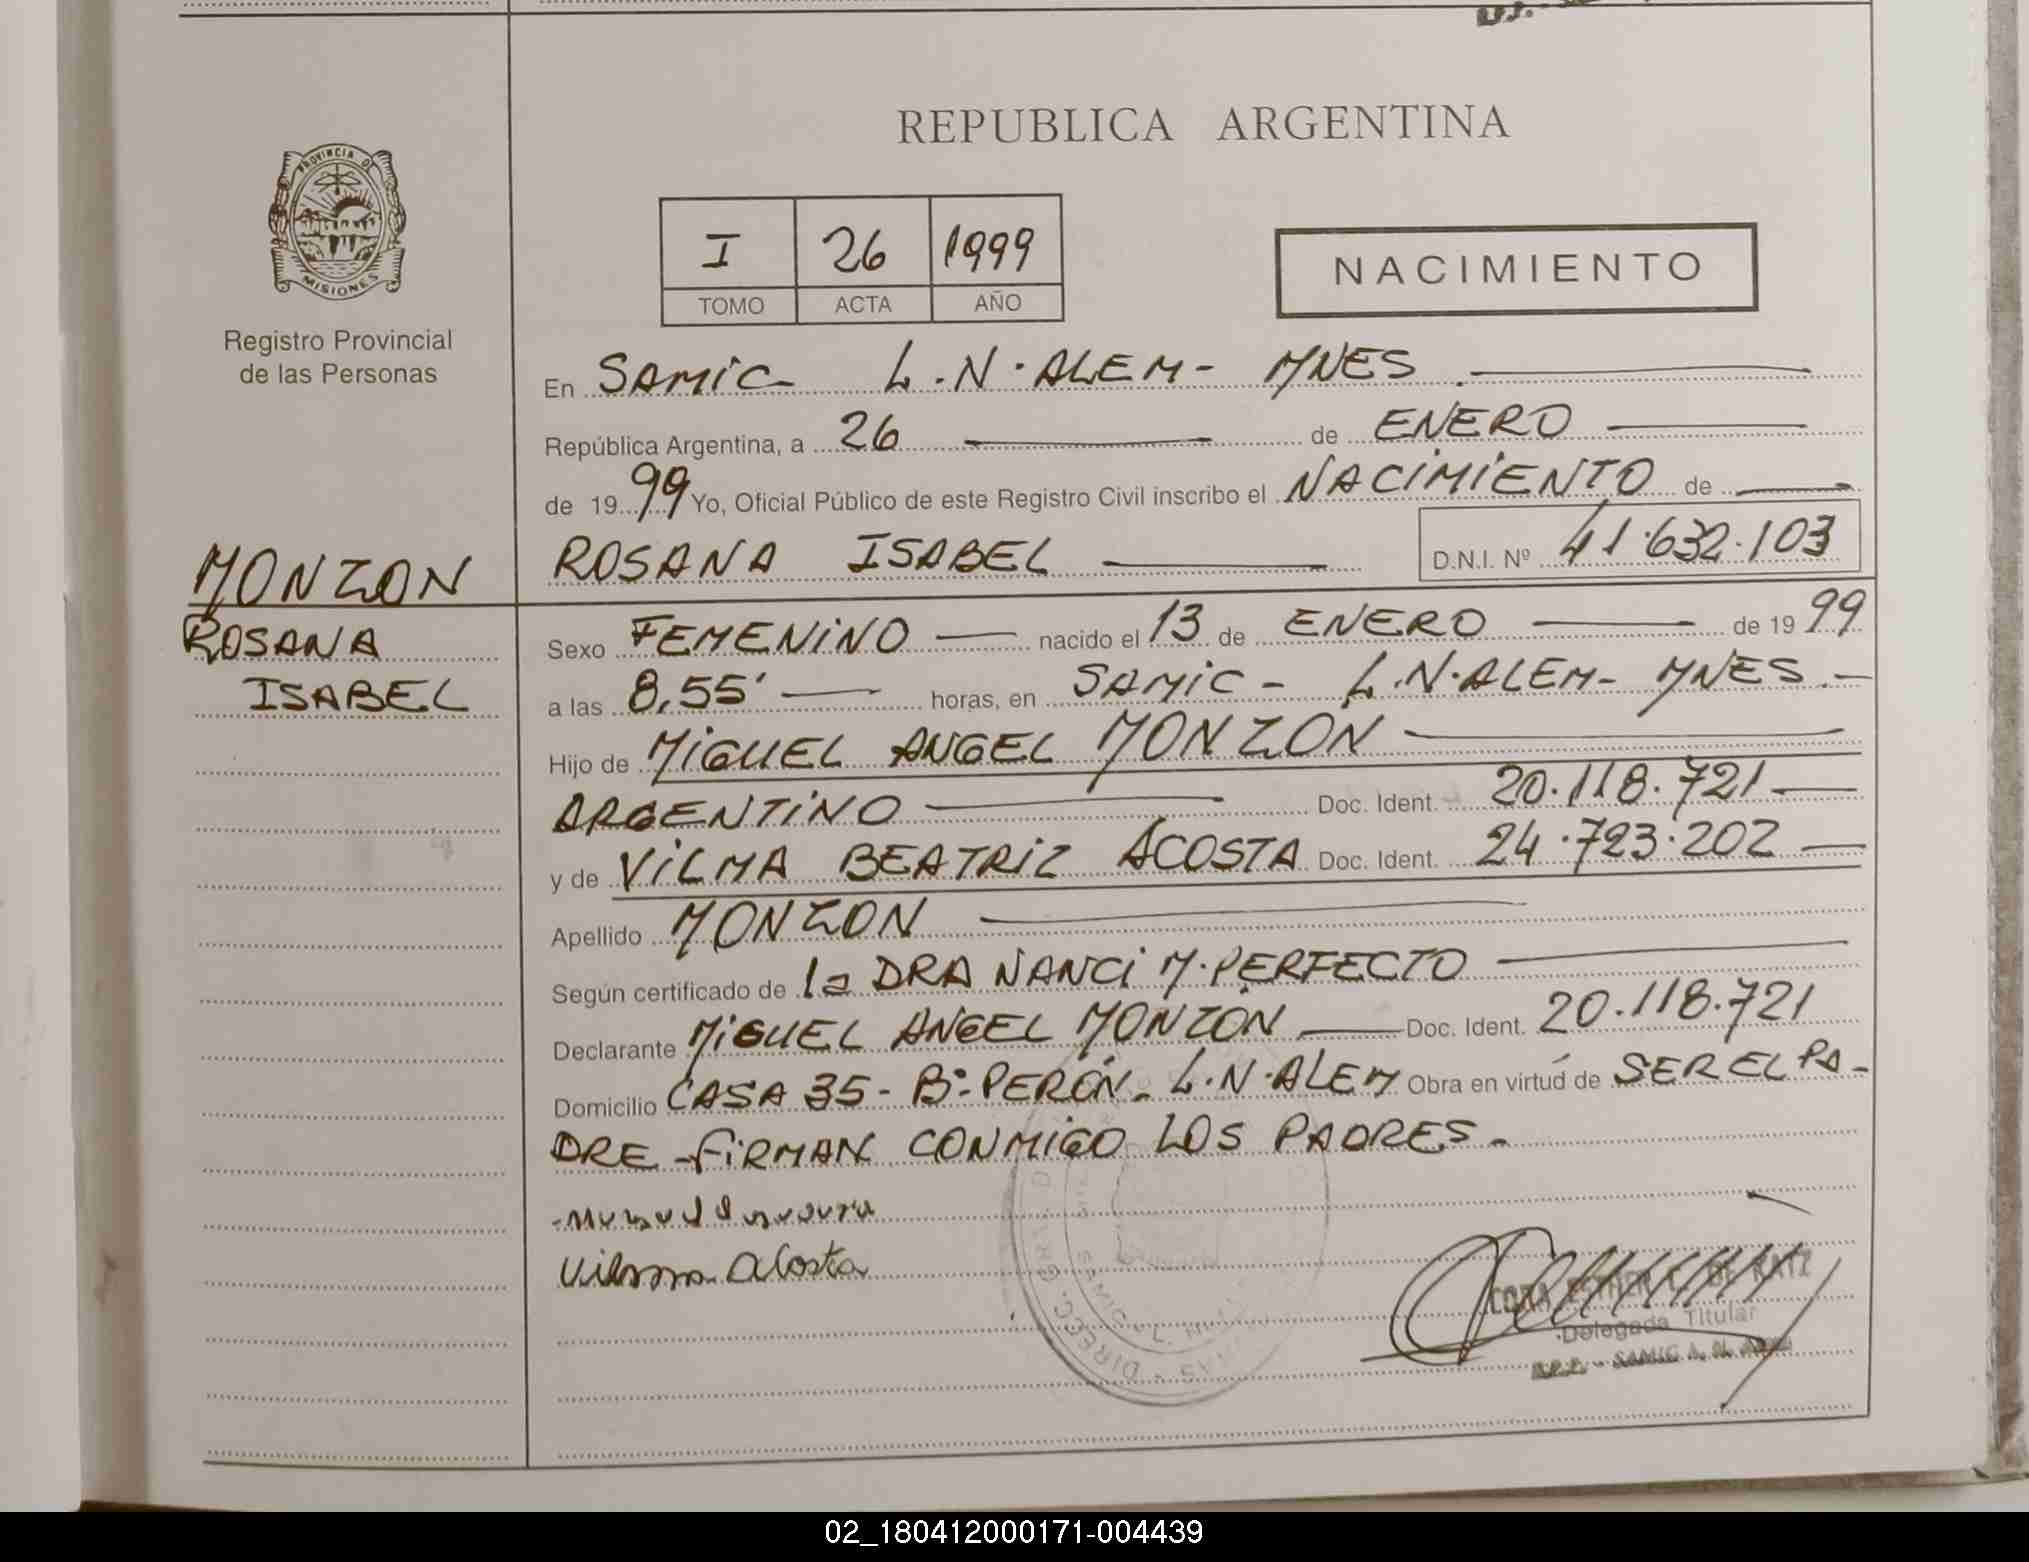 REPUBLICA ARGENTINA
PROVINCIA DE
MISIONES
Registro Provincial
de las Personas
I 26 1999
TOMO ACTA AÑO
NACIMIENTO
En SAMIC L.N.ALEM- MNES.
República Argentina, a 26 de ENERO
de 1999 Yo, Oficial Público de este Registro Civil inscribo el NACIMIENTO de
ROSANA ISABEL D.N.I. Nº 41.632.103
MONZON
ROSANA
ISABEL
Sexo FEMENINO nacido el 13 de ENERO de 1999
a las 8,55' horas, en SAMIC - L.N.ALEM- MNES.-
Hijo de MIGUEL ANGEL MONZON
ARGENTINO Doc. Ident. 20.118.721
y de VILMA BEATRIZ ACOSTA Doc. Ident. 24.723.202
Apellido MONZON
Según certificado de la DRA NANCI M.PERFECTO
Declarante MIGUEL ANGEL MONZÓN Doc. Ident. 20.118.721
Domicilio CASA 35 - Bº PERÓN. L.N.ALEM Obra en virtud de SER EL PA-
DRE - FIRMAN CONMIGO LOS PADRES-
Vilma Acosta
DE KATZ
Delegada Titular
SAMIC L. N. ALEM
02_180412000171-004439